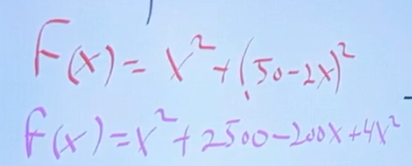 F(x) = x² + (50-2x)²
F(x) = x² + 2500 - 200x + 4x²